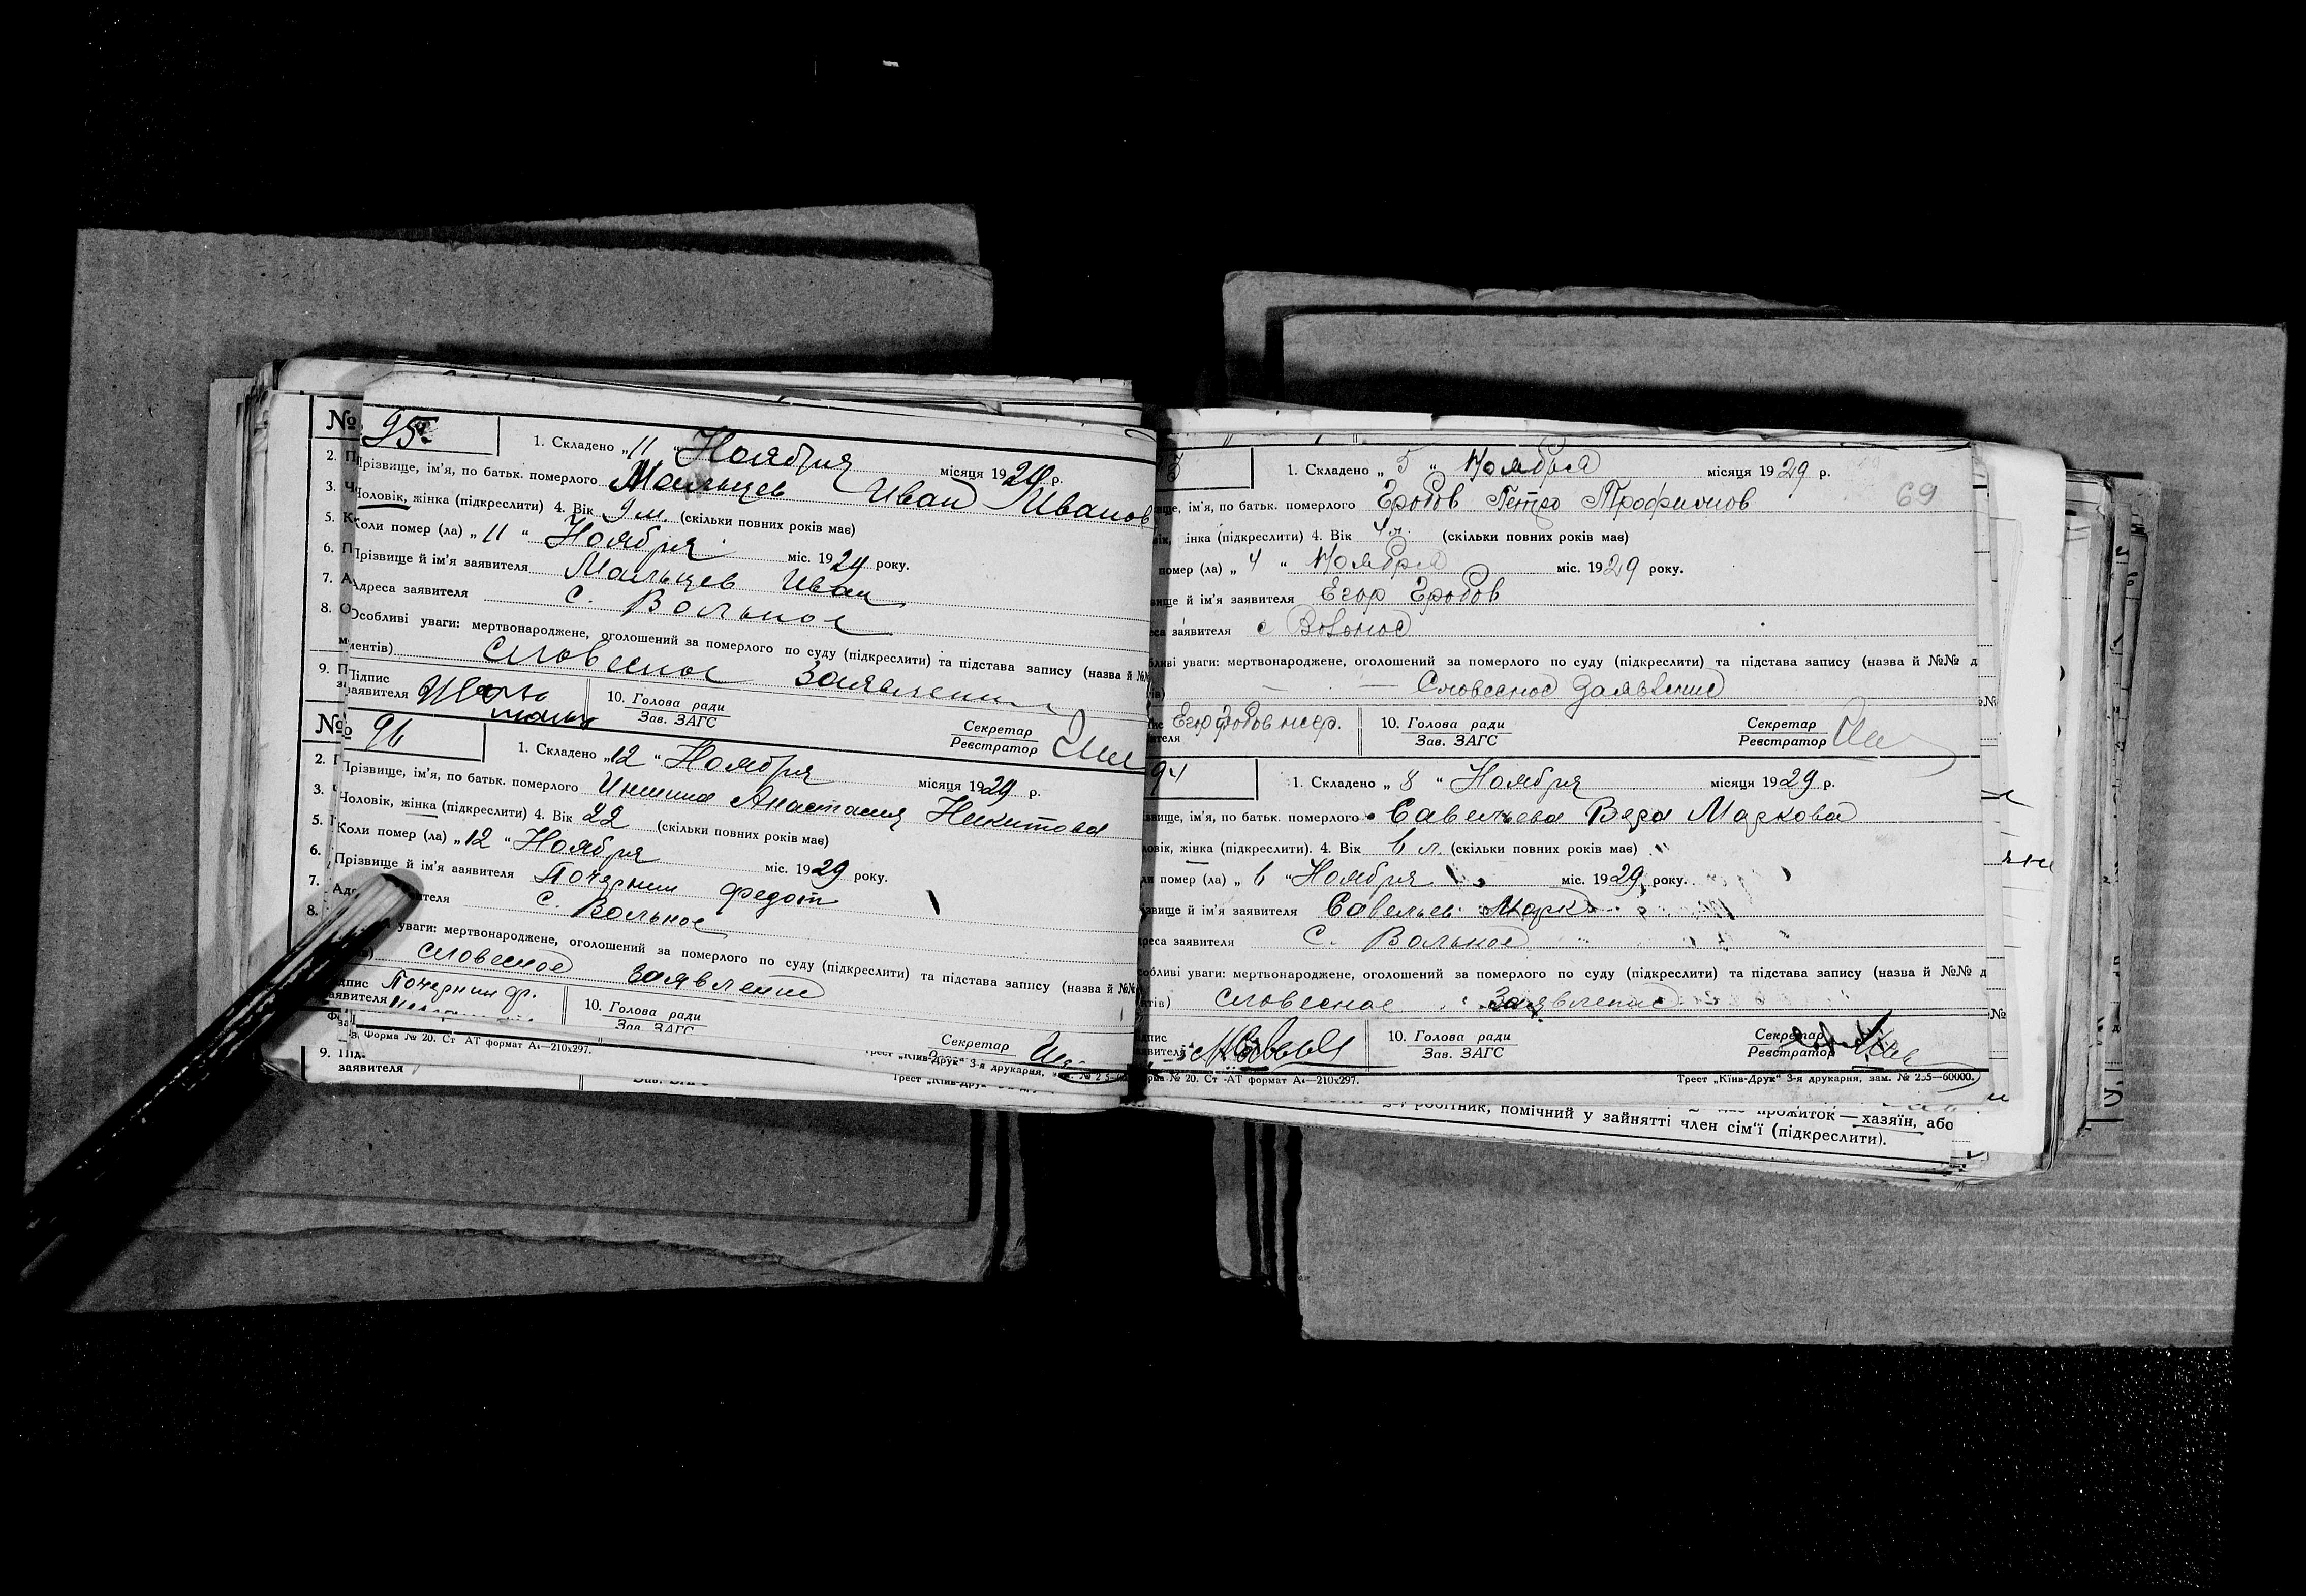 № 95.
1. Складено „ 11 “ Ноября місяця 1929 р.
2. Прізвище, ім'я, по батьк. померлого Мальцев Иван Иванов
3. Чоловік, жінка (підкреслити) 4. Вік 9 м. (скільки повних років має)
5. Коли помер (ла) „ 11 “ Ноября міс. 1929 року.
6. Прізвище й ім'я заявителя Мальцев Иван
7. Адреса заявителя с. Вольное
8. Особливі уваги: мертвонароджене, оголошений за померлого по суду (підкреслити) та підстава запису (назва й №№
ментів) Словесное Заявление
9. Підпис заявителя
10. Голова ради
Зав. ЗАГС
Секретар
Реєстратор
№ 96
1. Складено „ 12 “ Ноября місяця 1929 р.
2. Прізвище, ім'я, по батьк. померлого Анастасия Никитова
3. Чоловік, жінка (підкреслити) 4. Вік 22 (скільки повних років має)
5. Коли помер (ла) „ 12 “ Ноября міс. 1929 року.
6. Прізвище й ім'я заявителя Почернин Федот
7. Ад теля с. Вольное
8. уваги: мертвонароджене, оголошений за померлого по суду (підкреслити) та підстава запису (назва й №№
Словесное Заявление
дпис Почернин Ф.
аявителя
10. Голова ради
Зав. ЗАГС
Секретар
Форма № 20. Ст АТ формат А4—210x297.
Трест „Київ-Друк“ 3-я друкарня,
9. Під.
заявителя
3
1. Складено „ 5 “ Ноября місяця 1929 р.
69
ище, ім'я, по батьк. померлого Гробов Петро Трофимов
вік, інка (підкреслити) 4. Вік (скільки повних років має)
помер (ла) „ 4 “ Ноября міс. 1929 року.
вище й ім'я заявителя Егор Гробов
еса заявителя с Вольное
бливі уваги: мертвонароджене, оголошений за померлого по суду (підкреслити) та підстава запису (назва й №№ д
— — Словесное Заявление
Егор Гробов негр.
10. Голова ради
Зав. ЗАГС
Секретар
Реєстратор
94
1. Складено „ 8 “ Ноября місяця 1929 р.
звище, ім'я, по батьк. померлого Савельева Вера Маркова
ловік, жінка (підкреслити). 4. Вік 6 л. (скільки повних років має)
ли помер (ла) „ 6 “ Ноября міс. 1929 року.
звище й ім'я заявителя Савельев Марк
реса заявителя с. Вольное
собливі уваги: мертвонароджене, оголошений за померлого по суду (підкреслити) та підстава запису (назва й №№ д
нтів) Словесное Заявление
дпис
явителя
10. Голова ради
Зав. ЗАГС
Секретар
Реєстратор
рма № 20. Ст -АТ формат А4—210x297.
Трест „Київ-Друк“ 3-я друкарня, зам. № 255—60000.
робітник, помічний у зайнятті член сім'ї (підкреслити).
прожиток — хазяїн, або